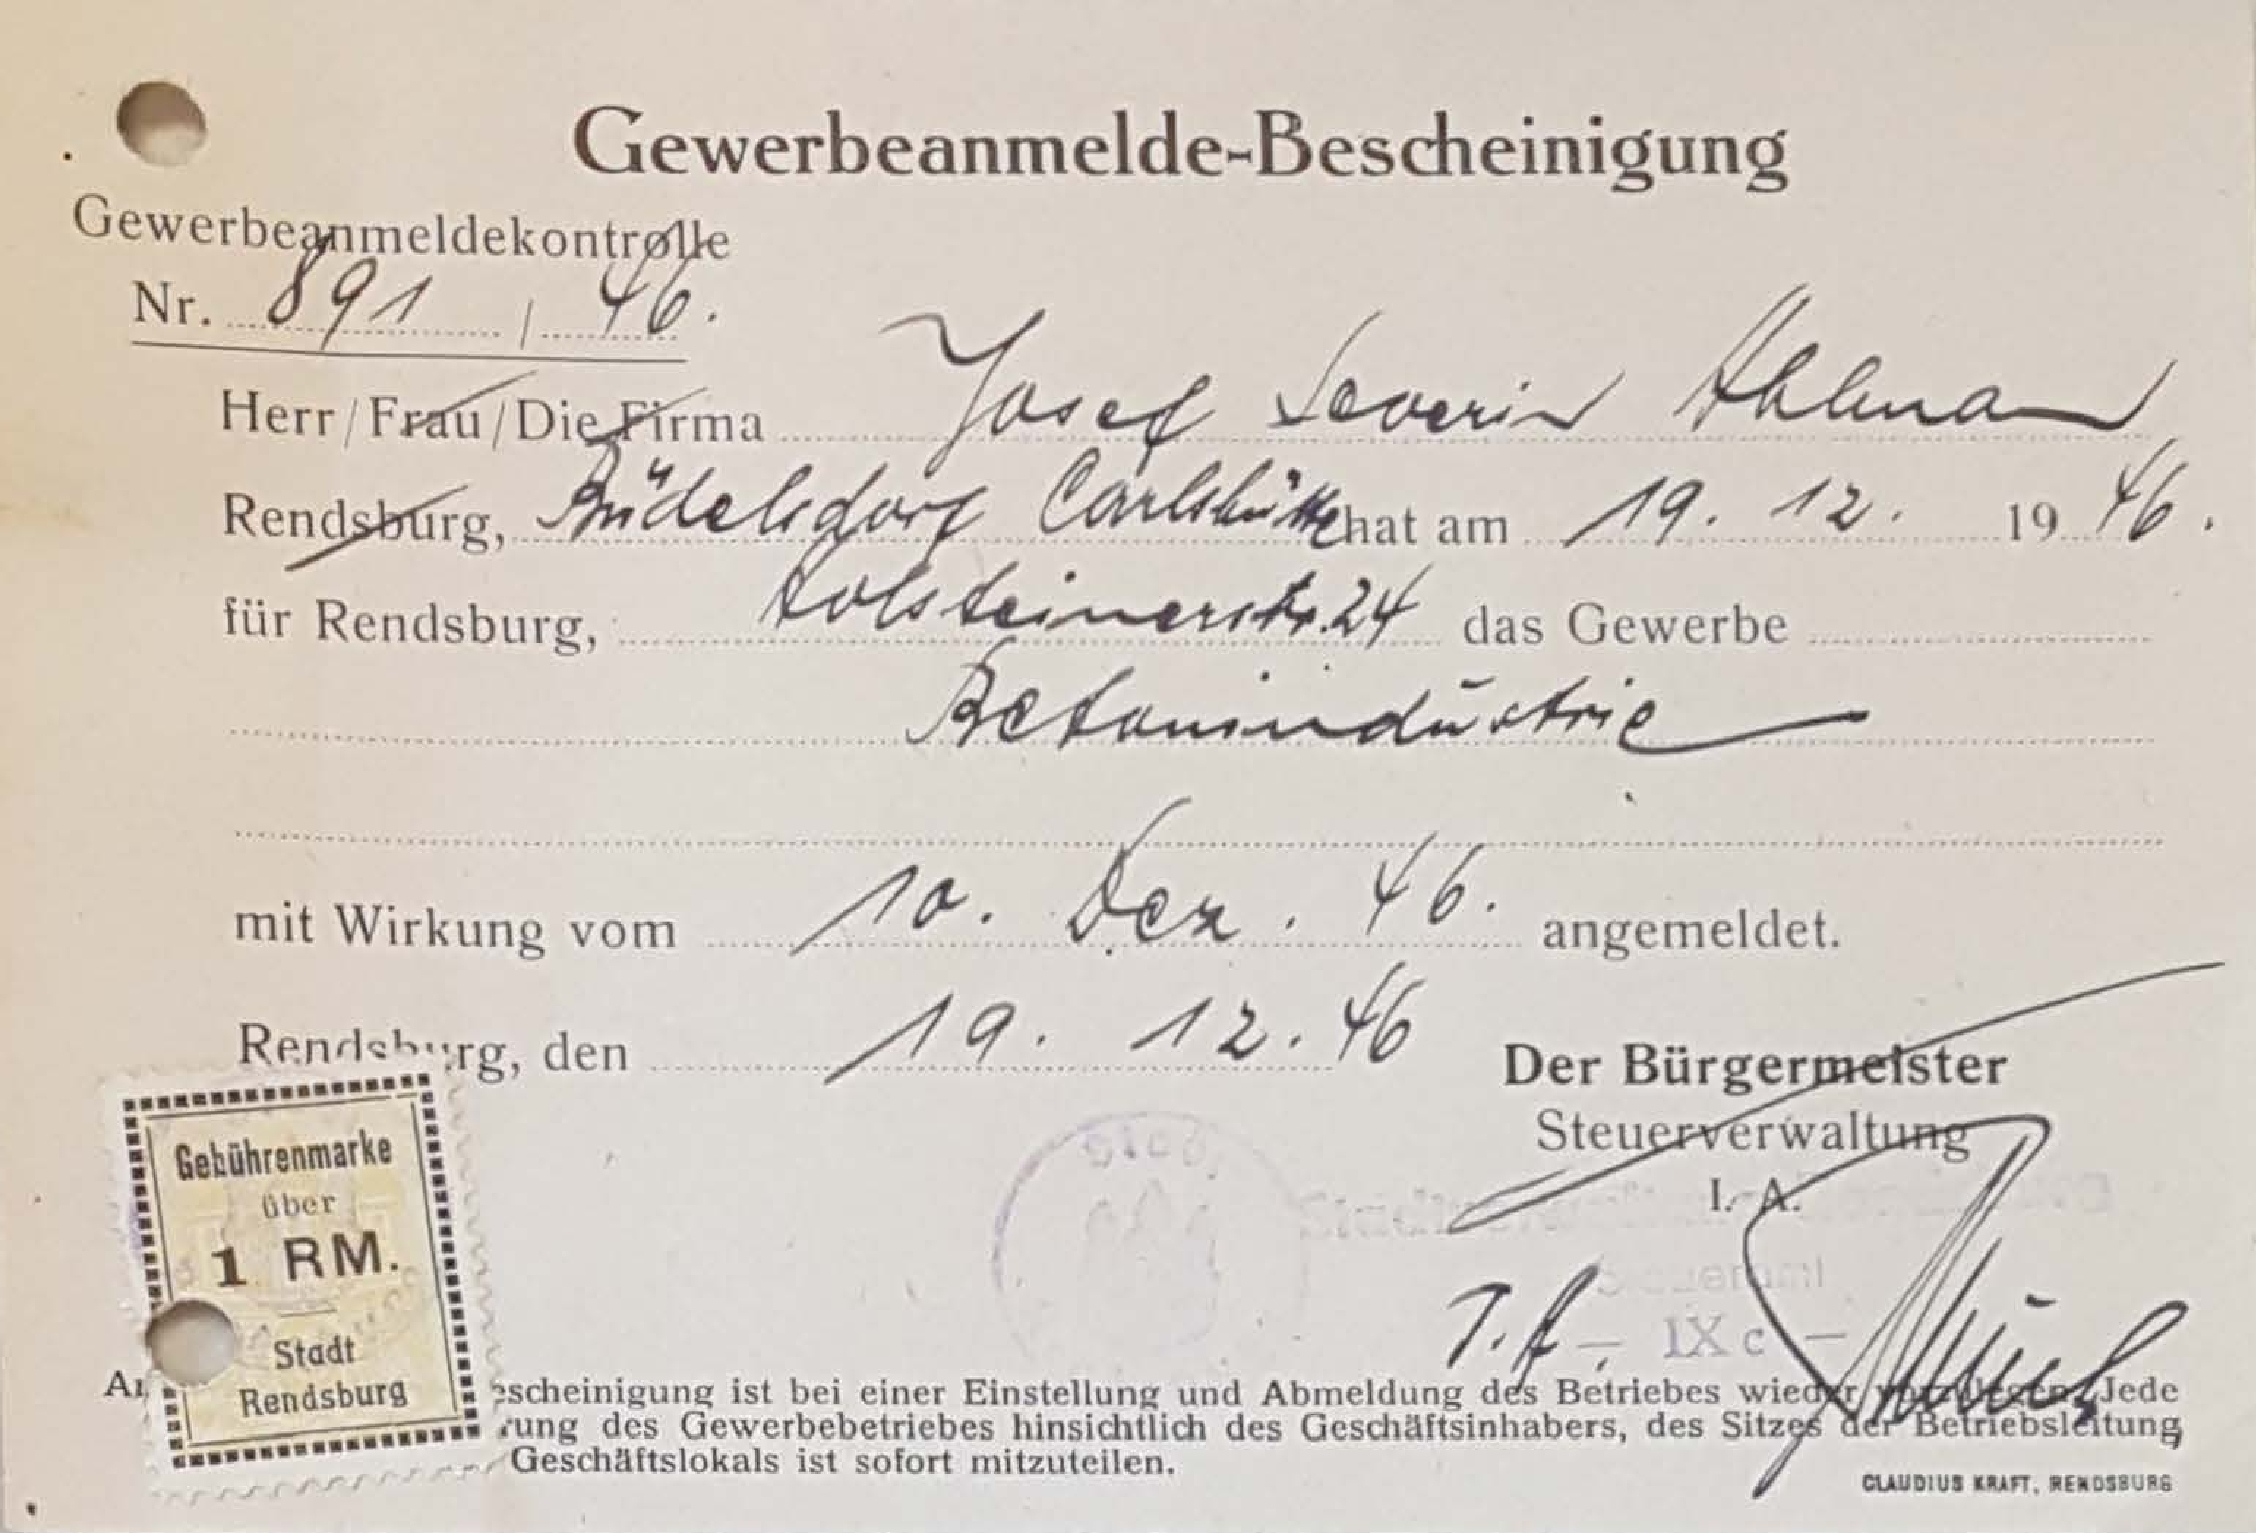 Gewerbeanmelde-Bescheinigung
Gewerbeanmeldekontrolle
Nr. 891 / 46.
Herr/Frau/Die Firma Josef Severin Ahlmann
Rendsburg, Büdelsdorf Carlshütte hat am 19. 12. 19 46.
für Rendsburg, Holsteinerstr. 24 das Gewerbe
Betonindustrie
mit Wirkung vom 10. Dez. 46. angemeldet.
Rendsburg, den 19. 12. 46
Der Bürgermeister
Steuerverwaltung
I. A.
Gebührenmarke
über
1 RM.
Stadt
Rendsburg
– IX c –
escheinigung ist bei einer Einstellung und Abmeldung des Betriebes wieder vorzulegen. Jede
rung des Gewerbebetriebes hinsichtlich des Geschäftsinhabers, des Sitzes der Betriebsleitung
Geschäftslokals ist sofort mitzuteilen.
CLAUDIUS KRAFT, RENDSBURG